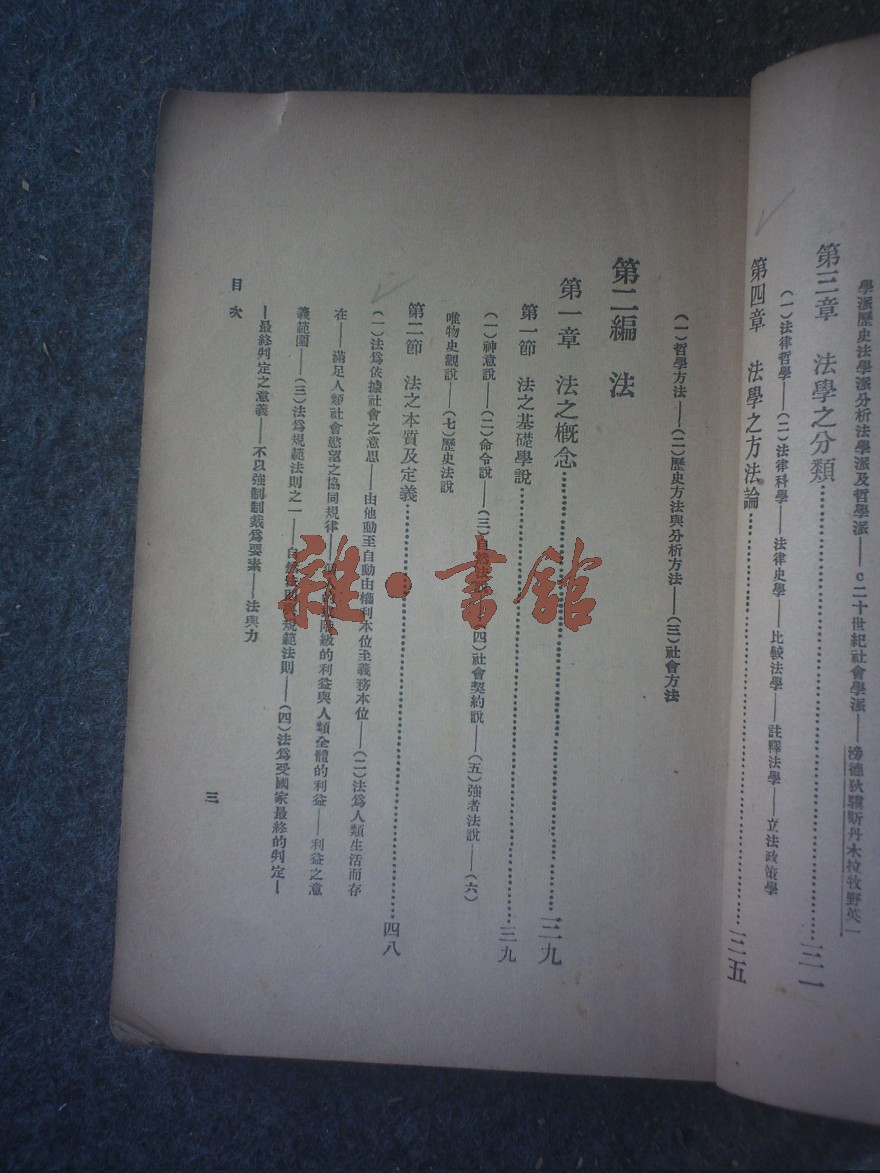 學派歷史法學派分析法學派及哲學派——c二十世紀社會學派——滂德狄驥斯丹木拉牧野英一
第三章　法學之分類……三一
（一）法律哲學——（二）法律科學——法律史學——比較法學——註釋法學——立法政策學
第四章　法學之方法論……三五
（一）哲學方法——（二）歷史方法與分析方法——（三）社會方法
第二編　法
第一章　法之概念……三九
第一節　法之基礎學說……三九
（一）神意說——（二）命令說——（三）自然法說——（四）社會契約說——（五）強者法說——（六）
唯物史觀說——（七）歷史法說
第二節　法之本質及定義……四八
（一）法爲依據社會之意思——由他動至自動由權利本位至義務本位——（二）法爲人類生活而存
在——滿足人類社會慾望之協同規律——階級的利益與人類全體的利益——利益之意
義範圍——（三）法爲規範法則之一——自然法則與規範法則——（四）法爲受國家最終的判定—
—最終判定之意義——不以強制制裁爲要素——法與力
目次
三
雜·書館